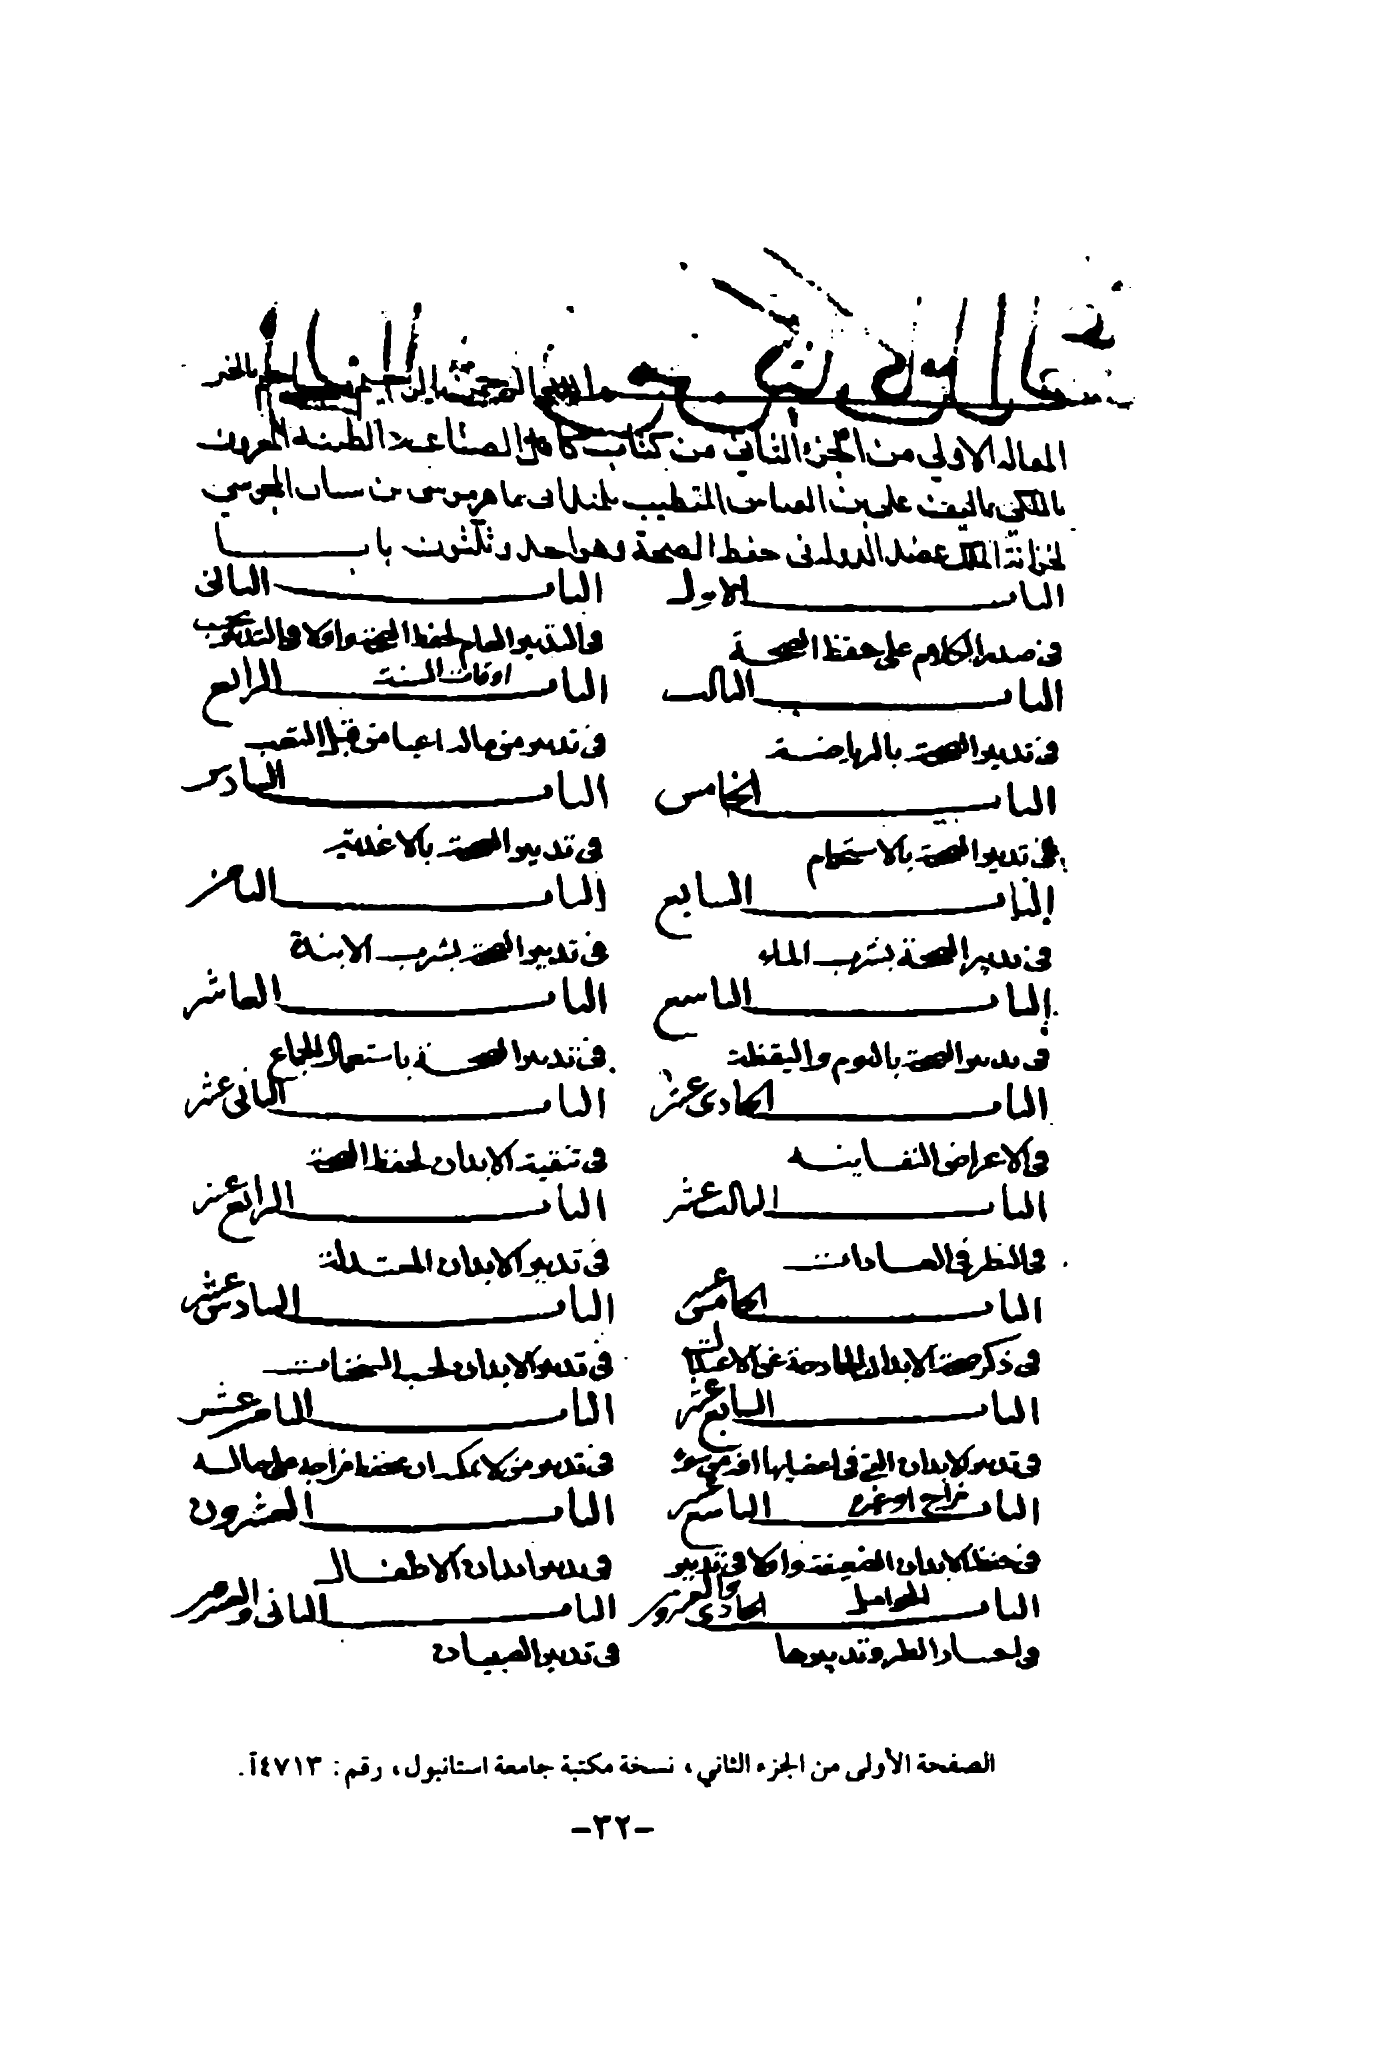 بسم الله الرحمن الرحيم
المقاله الاولي من الجزء الثاني من كتاب كامل الصناعة الطبية المعروف
بالملكي تاليف علي بن العباس المتطبب تلميذ ابي ماهر موسي بن سيار المجوسي
لخزانة الملك عضد الدولة في حفظ الصحة وهو احد وثلثون بابا
الباب الاول
في صدر الكلام علي حفظ الصحة
الباب الثاني
في التدبير العام لحفظ الصحة واولا في التدبير بحسب
اوقات السنة
الباب الثالث
في تدبير الصحة بالرياضة
الباب الرابع
في تدبير من ناله اعيا من قبل التعب
الباب الخامس
في تدبير الصحة بالاستحمام
الباب السادس
في تدبير الصحة بالاغذية
الباب السابع
في تدبير الصحة بشرب الماء
الباب الثامن
في تدبير الصحة بشرب الانبذة
الباب التاسع
في تدبير الصحة بالنوم واليقظة
الباب العاشر
في تدبير الصحة باستعمال الجماع
الباب الحادي عشر
في الاعراض النفسانية
الباب الثاني عشر
في تنقية الابدان لحفظ الصحة
الباب الثالث عشر
في النظر في العادات
الباب الرابع عشر
في تدبير الابدان المعتدلة
الباب الخامس عشر
في ذكر صحة الابدان الخارجة عن الاعتدال
الباب السادس عشر
في تدبير الابدان بحسب السحنات
الباب السابع عشر
في تدبير الابدان التي في اعضايها افة من سوء
مزاج او غيره
الباب الثامن عشر
في تدبير من لا يمكنه ان يحفظ مزاجه علي حاله
الباب التاسع عشر
في حفظ الابدان الضعيفة واولا في تدبير
الحوامل
الباب العشرون
في تدبير ابدان الاطفال
الباب الحادي والعشرون
في اختيار الظئر وتدبيرها
الباب الثاني والعشرون
في تدبير الصبيان
الصفحة الأولى من الجزء الثاني، نسخة مكتبة جامعة استانبول، رقم: ٤٧١٣أ.
-٣٢-